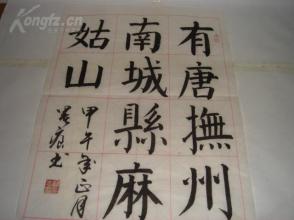 有唐撫州
南城縣麻
姑山
甲午年正月
Kongfz.com